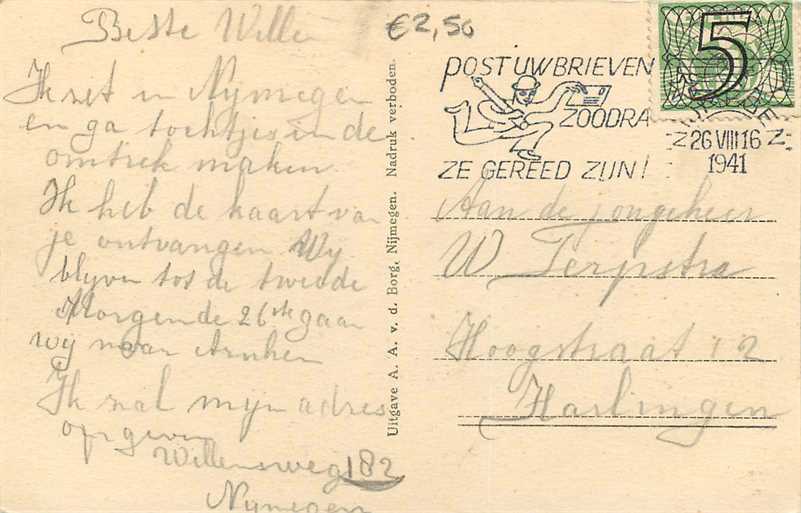 Beste Willem
€2,50
Ik zit in Nijmegen
en ga tochtjes in de
omtrek maken
Ik heb de kaart van
je ontvangen Wij
blijven tot de tweede
Morgen de 26ste gaan
wij naar Arnhem
Ik zal mijn adres
opgeven
Willemsweg 182
Nijmegen
Uitgave A. A. v. d. Borg, Nijmegen. Nadruk verboden.
POST UW BRIEVEN
ZOODRA
ZE GEREED ZIJN!
5
26 VIII 16
1941
Aan de jongeheer
W Terpstra
Hoogstraat 12
Harlingen